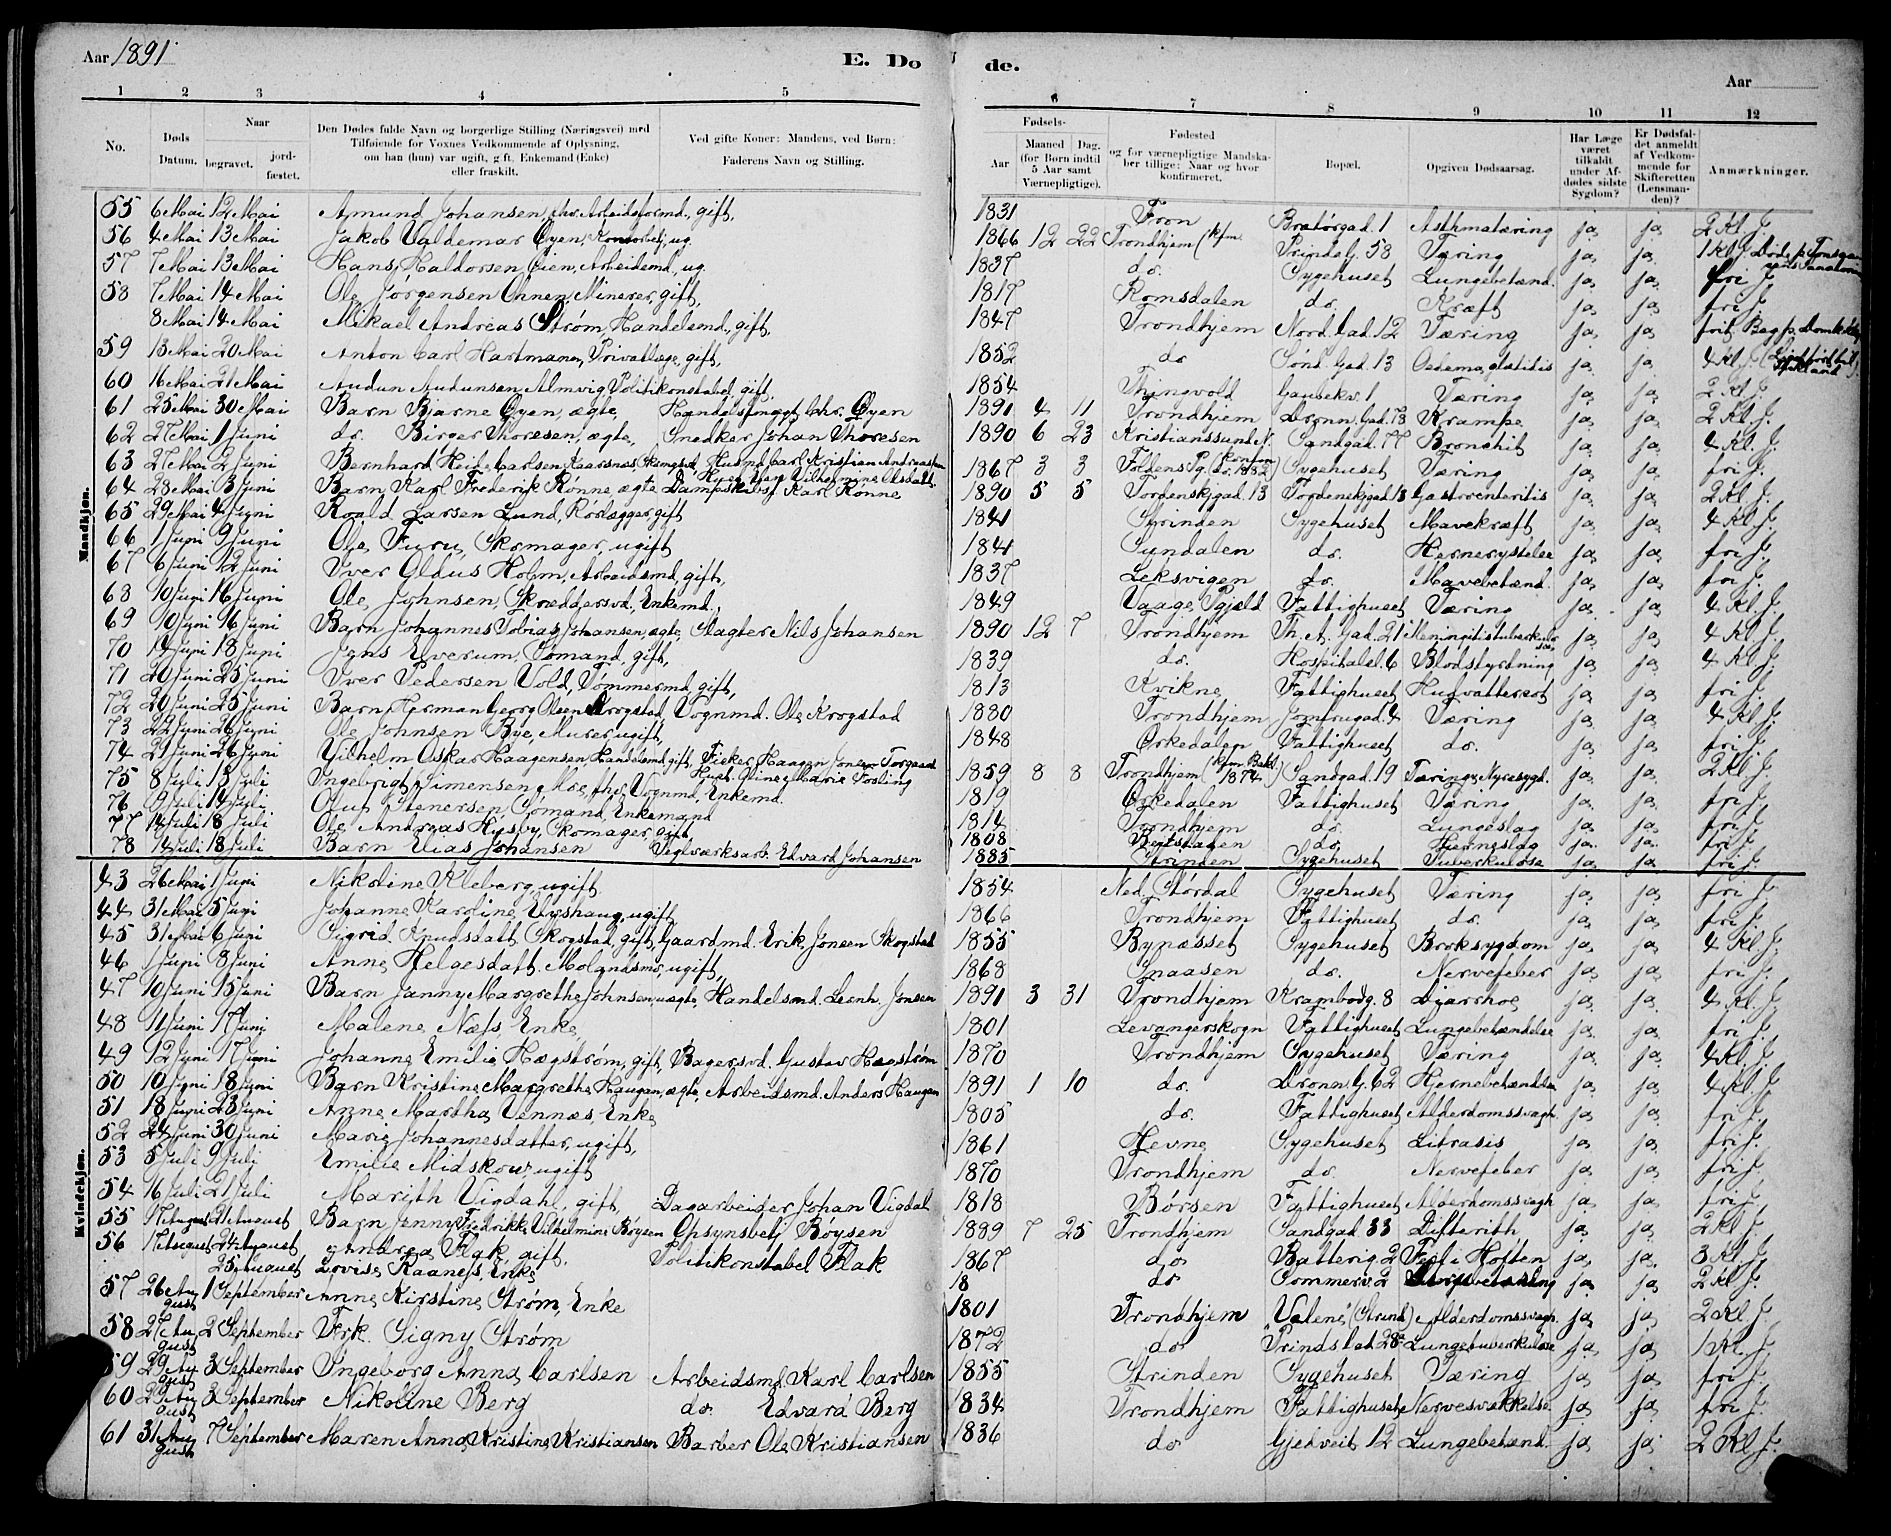 Aar 1891 E. Dø de. Aar
1 2 3 4 5 6 7 8 9 10 11 12
No. Døds Datum. Naar begravet. jordfæstet. Den Dødes fulde Navn og borgerlige Stilling (Næringsvei) med Tilføiende for Voxnes Vedkommende af Oplysning, om han (hun) var ugift, gift, Enkemand (Enke) eller fraskilt. Ved gifte Koner: Mandens, ved Børn: Faderens Navn og Stilling. Fødsels- Aar Maaned Dag. (for Børn indtil 5 Aar samt Værnepligtige). Fødested og for værnepligtige Mandskaber tillige: Naar og hvor konfirmeret. Bopæl. Opgiven Dødsaarsag. Har Læge været tilkaldt under Afdødes sidste Sygdom? Er Dødsfaldet anmeldt af Vedkommende for Skifteretten (Lensmanden)? Anmærkninger.
Mandkjøn.
55 6 Mai 12 Mai Amund Johansen, fhv. Arbeidsformd., gift, 1831 Fron Bratørgad. 1 Asthmatæring ja, ja, 2 Kl. J.
56 4 Mai 13 Mai Jakob Valdemar Øyen, Kontorbetj. ug. 1866 12 22 Trondhjem (kfm Prindsg. 58 Tæring ja, ja, 1 Kl. J. Døde p. Tonsaasens Sanatorium
57 7 Mai 13 Mai Hans Haldorsen Øien, Arbeidsmd, ug. 1837 do. Sygehuset Lungebetænd. ja, ja, fri J.
58 7 Mai 14 Mai Ole Jørgensen Ohnen, Minerer, gift, 1817 Romsdalen do. Kræft ja, ja, fri J.
8 Mai 14 Mai Mikael Andreas Strøm, Handelsmd, gift, 1847 Trondhjem Nord. Gad. 12 Tæring ja, ja, frit Beg. p. Domkirkeg.
59 13 Mai 20 Mai Anton Carl Hartmann, Privatlæge, gift, 1852 do Sønd. Gad. 13 Oedema glotitis ja, ja, 4 Kl. J.
60 16 Mai 21 Mai Audun Audunsen Almvig Politikonstabel, gift, 1854 Thingvold Gaubekv. 1 Tæring ja, ja, 2 Kl. J.
61 25 Mai 30 Mai Barn Bjarne Øyen, ægte, Handelsfmægt. Chr. Øyen 1891 4 11 Trondhjem Dronn. Gad. 73 Krampe ja, ja, 2 Kl. J.
62 27 Mai 1 Juni do. Birger Thoresen, ægte, Snedker Johan Thoresen 1890 6 23 Kristianssund N. Sandgad. 77 Bronchit ja, ja, 4 Kl. J.
63 27 Mai 2 Juni Bernhard Heibe Carlsen Kaarsnæs Skomgsvd, Husmd. Carl Kristian Andreassen 1867 3 3 Foldens Pg. (Konfm do. 1882) Sygehuset Tæring ja, ja, fri J.
64 28 Mai 3 Juni Barn Karl Frederik Rønne, ægte Dampskibsf. Karl Rønne 1890 5 5 Tordenskjgad. 13 Tordenskjgad. 13 Gastorenteritis ja, ja, 2 Kl. J.
65 29 Mai 4 Juni Roald Larsen Lund, Rorlægger, gift 1841 Strinden Sygehuset Mavekræft ja, ja, 4 Kl. J.
66 1 Juni 9 Juni Ole Furu, Skomager, ugift 1841 Sundalen do. Hernerystelse ja, ja, fri J.
67 6 Juni 12 Juni Iver Olaus Holm, Arbeidsmd, gift, 1837 Leksvigen do. Mavebetænd. ja, ja, fri J.
68 10 Juni 16 Juni Ole Johnsen, Skræddersvd, Enkemd., 1849 Vaage Pgjæld Fattighuset Tæring ja, ja, 4 Kl. J.
69 10 Juni 16 Juni Barn Johannes Tobias Johansen, ægte, Slagter Nils Johansen 1890 12 7 Trondhjem Th. A. Gad. 21 Meningitis tuberkulosa ja, ja, 4 Kl. J.
70 14 Juni 18 Juni Jens Elverum, Sømand, gift, 1839 do. Hospitalsl. 6 Blodstyrtning ja, ja, 4 Kl. J.
71 20 Juni 25 Juni Iver Pedersen Vold, Tømmermd, gift, 1813 Kvikne Fattighuset ja, ja, fri J.
72 20 Juni 25 Juni Barn Herman Georg Olsen Krogstad Vognmd. Ole Krogstad 1880 Trondhjem Jomfrugad. 4 Tæring ja, ja, 4 Kl. J.
73 22 Juni 26 Juni Ole Johnsen Bye, Murer, ugift, 1848 Ørkedalen Fattighuset do. ja, ja, fri J.
74 21 Juni 26 Juni Vilhelm Oskar Haagensen, Handelsmd, gift, Fisker Haagen Jonsen Torgaard Hust. Oline Marie Forsling 1859 8 8 Trondhjem (kfm. Bakl. 1874) Sandgad. 19 Tæring, Nyresygd. ja, ja, 2 Kl. J.
75 8 Juli 13 Juli Ingebrigt Simensen Moe, fhv. Vognmd, Enkemd. 1819 Ørkedalen Fattighuset Tæring ja, ja, fri J.
76 9 Juli 14 Juli Oluf Stenersen, Sømand, Enkemand 1814 Trondhjem do. Lungeslag ja, ja, fri J.
77 14 Juli 18 Juli Ole Andreas Hysby, Skomager, gift, 1808 Beitstaden do. Hjerneslag ja, ja, fri J.
78 14 Juli 18 Juli Barn Elias Johansen Teglværksarb. Edvard Johansen 1885 Strinden Sygehuset Tuberkulose ja, ja, fri J.
Kvindekjøn.
43 26 Mai 1 Juni Nikoline Kleberg, ugift 1854 Ned. Stjørdal Sygehuset Tæring ja, ja, fri J.
44 31 Mai 5 Juni Johanne Karoline Eyshaug, ugift 1866 Trondhjem Fattighuset do. ja, ja, fri J.
45 31 Mai 6 Juni Sigrid Knudsdatt. Skogstad, gift, Gaardmd. Erik Jonsen Skogstad 1855 Bynæsset Sygehuset Broksygdom ja, ja, 4 Kl. J.
46 1 Juni 8 Juni Anne Helgesdatt. Molandsmo, ugift, 1868 Snaasen do. Nervefeber ja, ja, fri J.
47 10 Juni 15 Juni Barn Janny Margrethe Johnsen, uægte, Handelsmd. Leonh. Jonsen 1891 3 31 Trondhjem Krambodg. 8 Diarrhoe ja, ja, 4 Kl. J.
48 11 Juni 17 Juni Malene Næss, Enke, 1801 Levangerskogn Fattighuset Lungebetændelse ja, ja, fri J.
49 12 Juni 17 Juni Johanne Emilie Hægstrøm, gift, Bagersvd. Gustav Hægstrøm 1870 Trondhjem Sygehuset Tæring ja, ja, 4 Kl. J.
50 10 Juni 18 Juni Barn Kristine Margrethe Haugan, ægte, Arbeidsmd. Anders Haugan 1891 1 10 do. Dronn. G. 62 Hjernebetændelse ja, ja, 4 Kl. J.
51 18 Juni 23 Juni Anne Martha Vennæs, Enke, 1805 do. Fattighuset Alderdomssvagh. ja, ja, fri J.
52 24 Juni 30 Juni Marie Johannesdatter, ugift, 1861 Hevne Sygehuset Litrasis ja, ja, fri J.
53 5 Juli 9 Juli Emilie Midskow, ugift 1870 Trondhjem do. Nervefeber ja, ja, fri J.
54 16 Juli 21 Juli Marith Vigdahl, gift, Dagarbeider Johan Vigdal 1818 Børsen Fattighuset Alderdomssvagh ja, ja, fri J.
55 17 August 21 August Barn Jenny Fredrikke Vilhelmine Bøysen Opsynsbetj. Bøysen 1889 7 25 Trondhjem Sandgad. 33 Difterith ja, ja, 2 Kl. J.
56 17 August 24 August Andrea Flak, gift. Politikonstabel Flak 1867 do. Batterig. 2 Feil i Hoften ja, ja, 3 Kl. J.
25 August Lovise Raaness, Enke 18 do Sommerv. 2 ja, ja, 2 Kl. J.
57 26 August 1 September Anne Kirstine Strøm, Enke 1801 Trondhjem Valene (Strind) Alderdomssvagh ja, ja, 2 Kl. J.
58 27 August 2 September Frk. Signy Strøm 1872 do Prindsl. 28 Lungetuberkulose ja, ja, 1 Kl. J.
59 29 August 3 September Ingeborg Anna Carlsen Arbeidsmd. Karl Carlsen 1855 Strinden Sygehuset Tæring ja, ja, fri J.
60 29 August 3 September Nikoline Berg do. Edvard Berg 1834 Trondhjem Fattighuset Nervesvækkelse ja, ja, fri J.
61 31 August 7 September Maren Anna Kristine Kristiansen Barber Ole Kristiansen 1836 do. Gjedveit 12 Lungebetænd. ja, ja, 2 Kl. J.